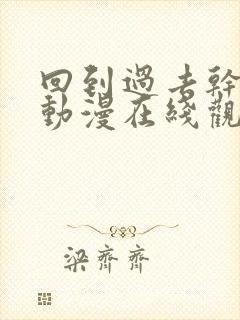 回到過去幹
動漫在綫觀
梁齊齊